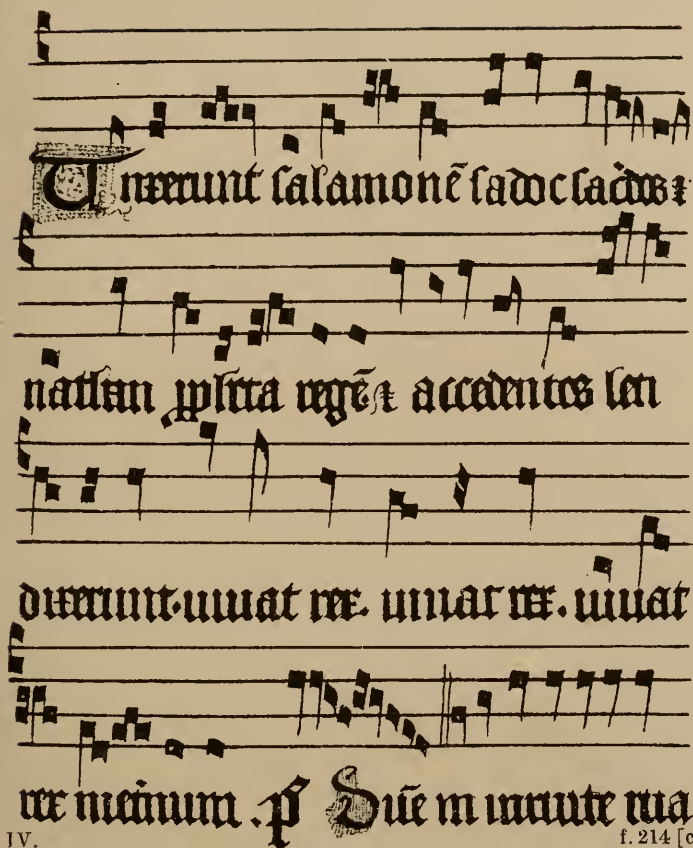 Unxerunt salamonē sadoc sac̄dos ⁊
nathan ꝓph̄eta regē ⁊ accedentes leti
dixerunt. uiuat rex. uiuat rex. uiuat
rex in et̄num. p̄ Dn̄e in uirtute tua
IV. f. 214 [c